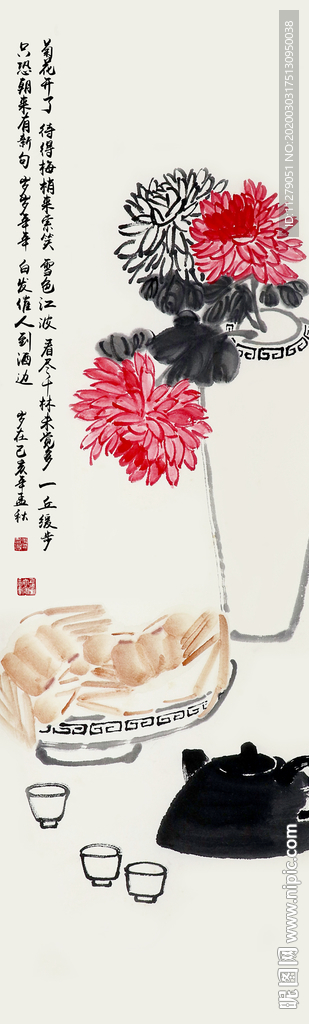 菊花开了 待得梅梢来索笑 雪色江波 看尽千林未觉多 一丘缓步
只恐朝来有新句 岁岁年年 白发催人到酒边 岁在己亥年孟秋
ID:11279051 NO:20200303175130950038
昵图网 www.nipic.com